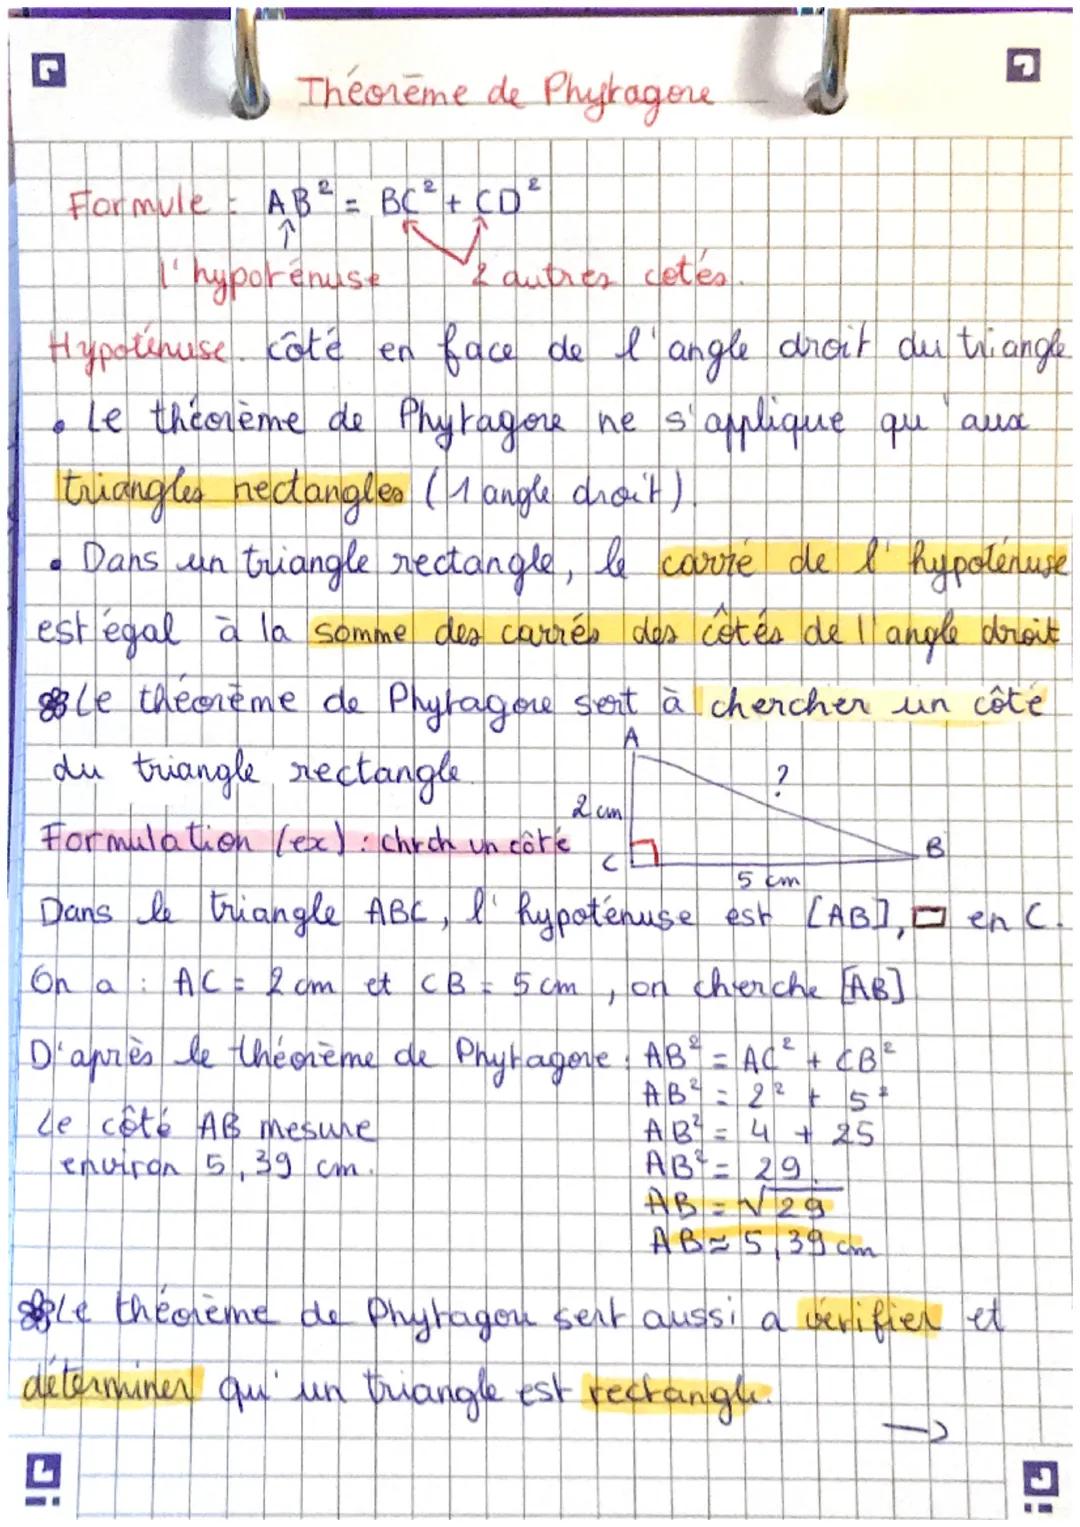 Théorème de Phytagore
Formule : AB² = BC² + CD²
l'hypoténuse 2 autres cotés.
Hypoténuse. côté en face de l'angle droit du triangle
• Le théorème de Phytagore ne s'applique qu'aux
triangles rectangles (1 angle droit).
• Dans un triangle rectangle, le carré de l'hypoténuse
est égal à la somme des carrés des côtés de l'angle droit
Le théorème de Phytagore sert à chercher un côté
du triangle rectangle.
A
?
2 cm
Formulation (ex) : chrch un côté
C
B
5 cm
Dans le triangle ABC, l'hypoténuse est [AB], ▭ en C.
On a : AC = 2 cm et CB = 5 cm, on cherche [AB]
D'après le théorème de Phytagore : AB² = AC² + CB²
AB² = 2² + 5²
Le côté AB mesure
AB² = 4 + 25
environ 5,39 cm.
AB² = 29.
AB = √29
AB ≈ 5,39 cm
Le théorème de Phytagore sert aussi a vérifier et
déterminer qu'un triangle est rectangle.